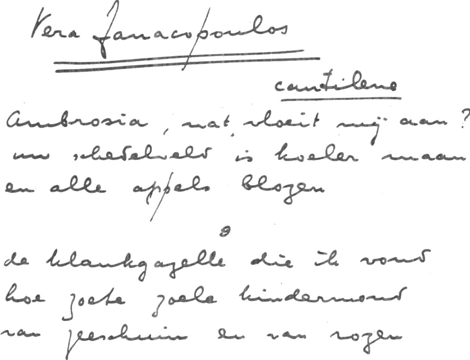 Vera Janacopoulos
cantilene
Ambrosia, wat vloeit mij aan?
uw schedelveld is koeler maan
en alle appels blozen
de klankgazelle die ik vond
hoe zoete zoele kindermond
van zeeschuim en van rozen